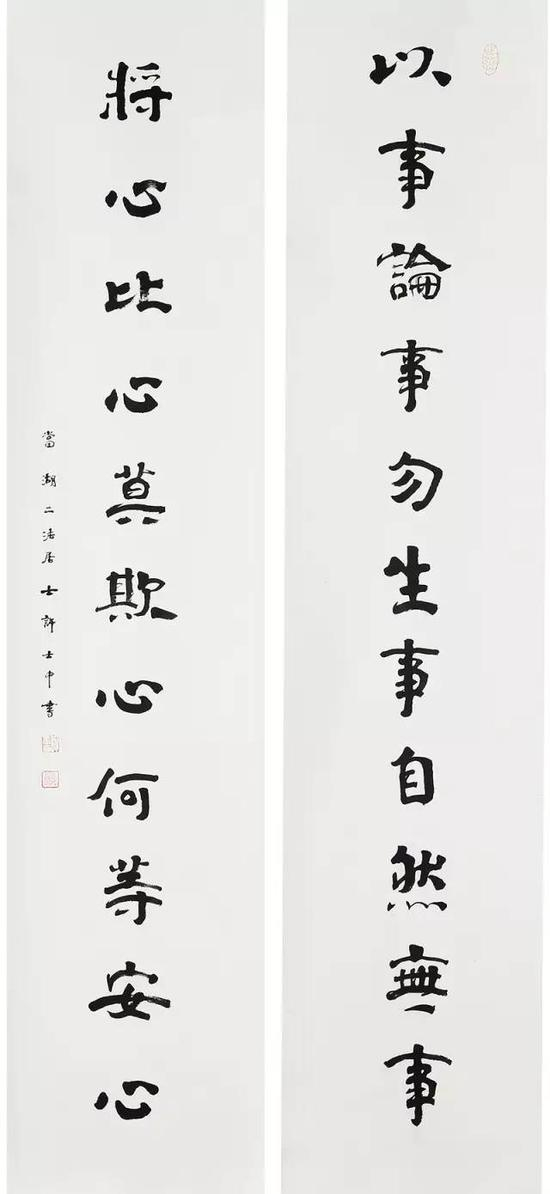 以事論事勿生事自然無事
將心比心莫欺心何等安心
當湖二法居士許士中書